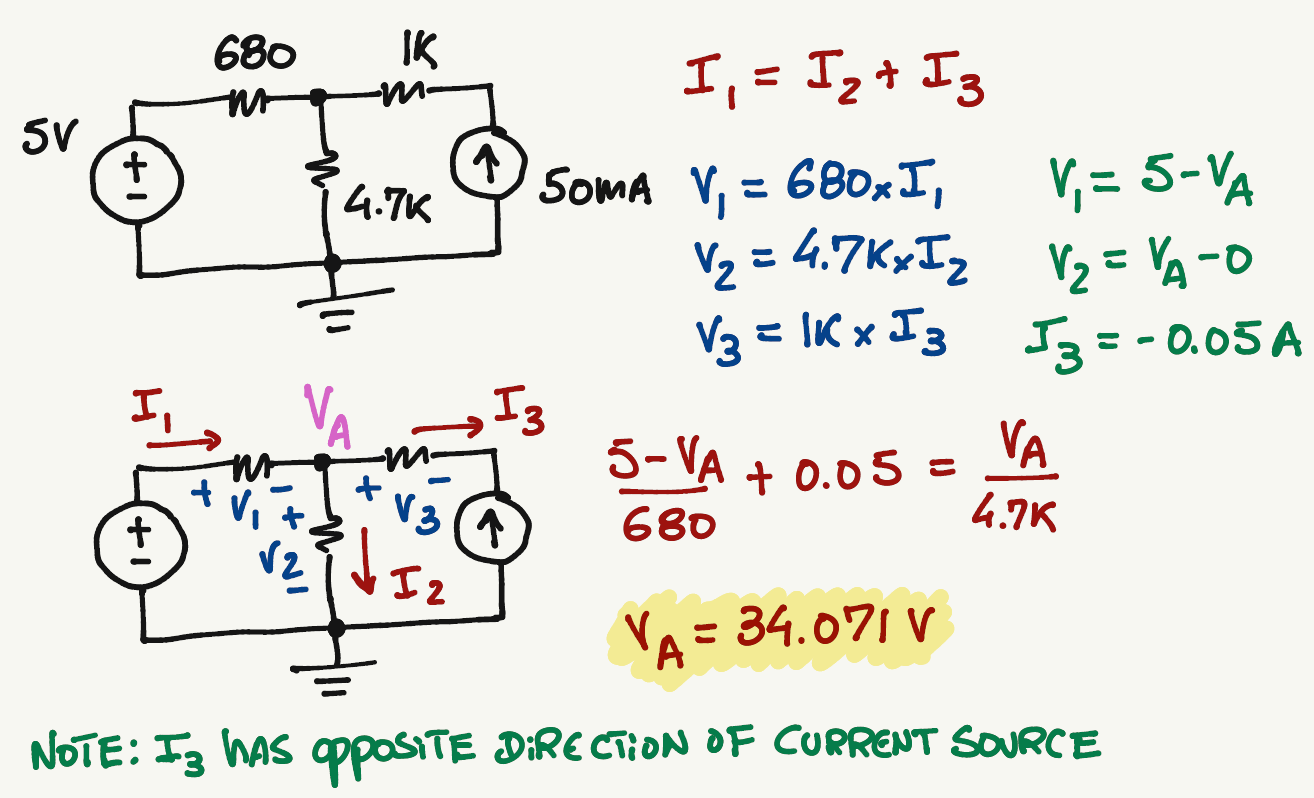 680 1K
5V
+
-
4.7K
50mA
I₁ = I₂ + I₃
V₁ = 680 x I₁
V₂ = 4.7K x I₂
V₃ = 1K x I₃
V₁ = 5 - V_A
V₂ = V_A - 0
I₃ = - 0.05 A
I₁ V_A I₃
+ V₁ - + V₃ -
+
V₂
-
I₂
+
-
5 - V_A / 680 + 0.05 = V_A / 4.7K
V_A = 34.071 V
NOTE: I₃ HAS OPPOSITE DIRECTION OF CURRENT SOURCE